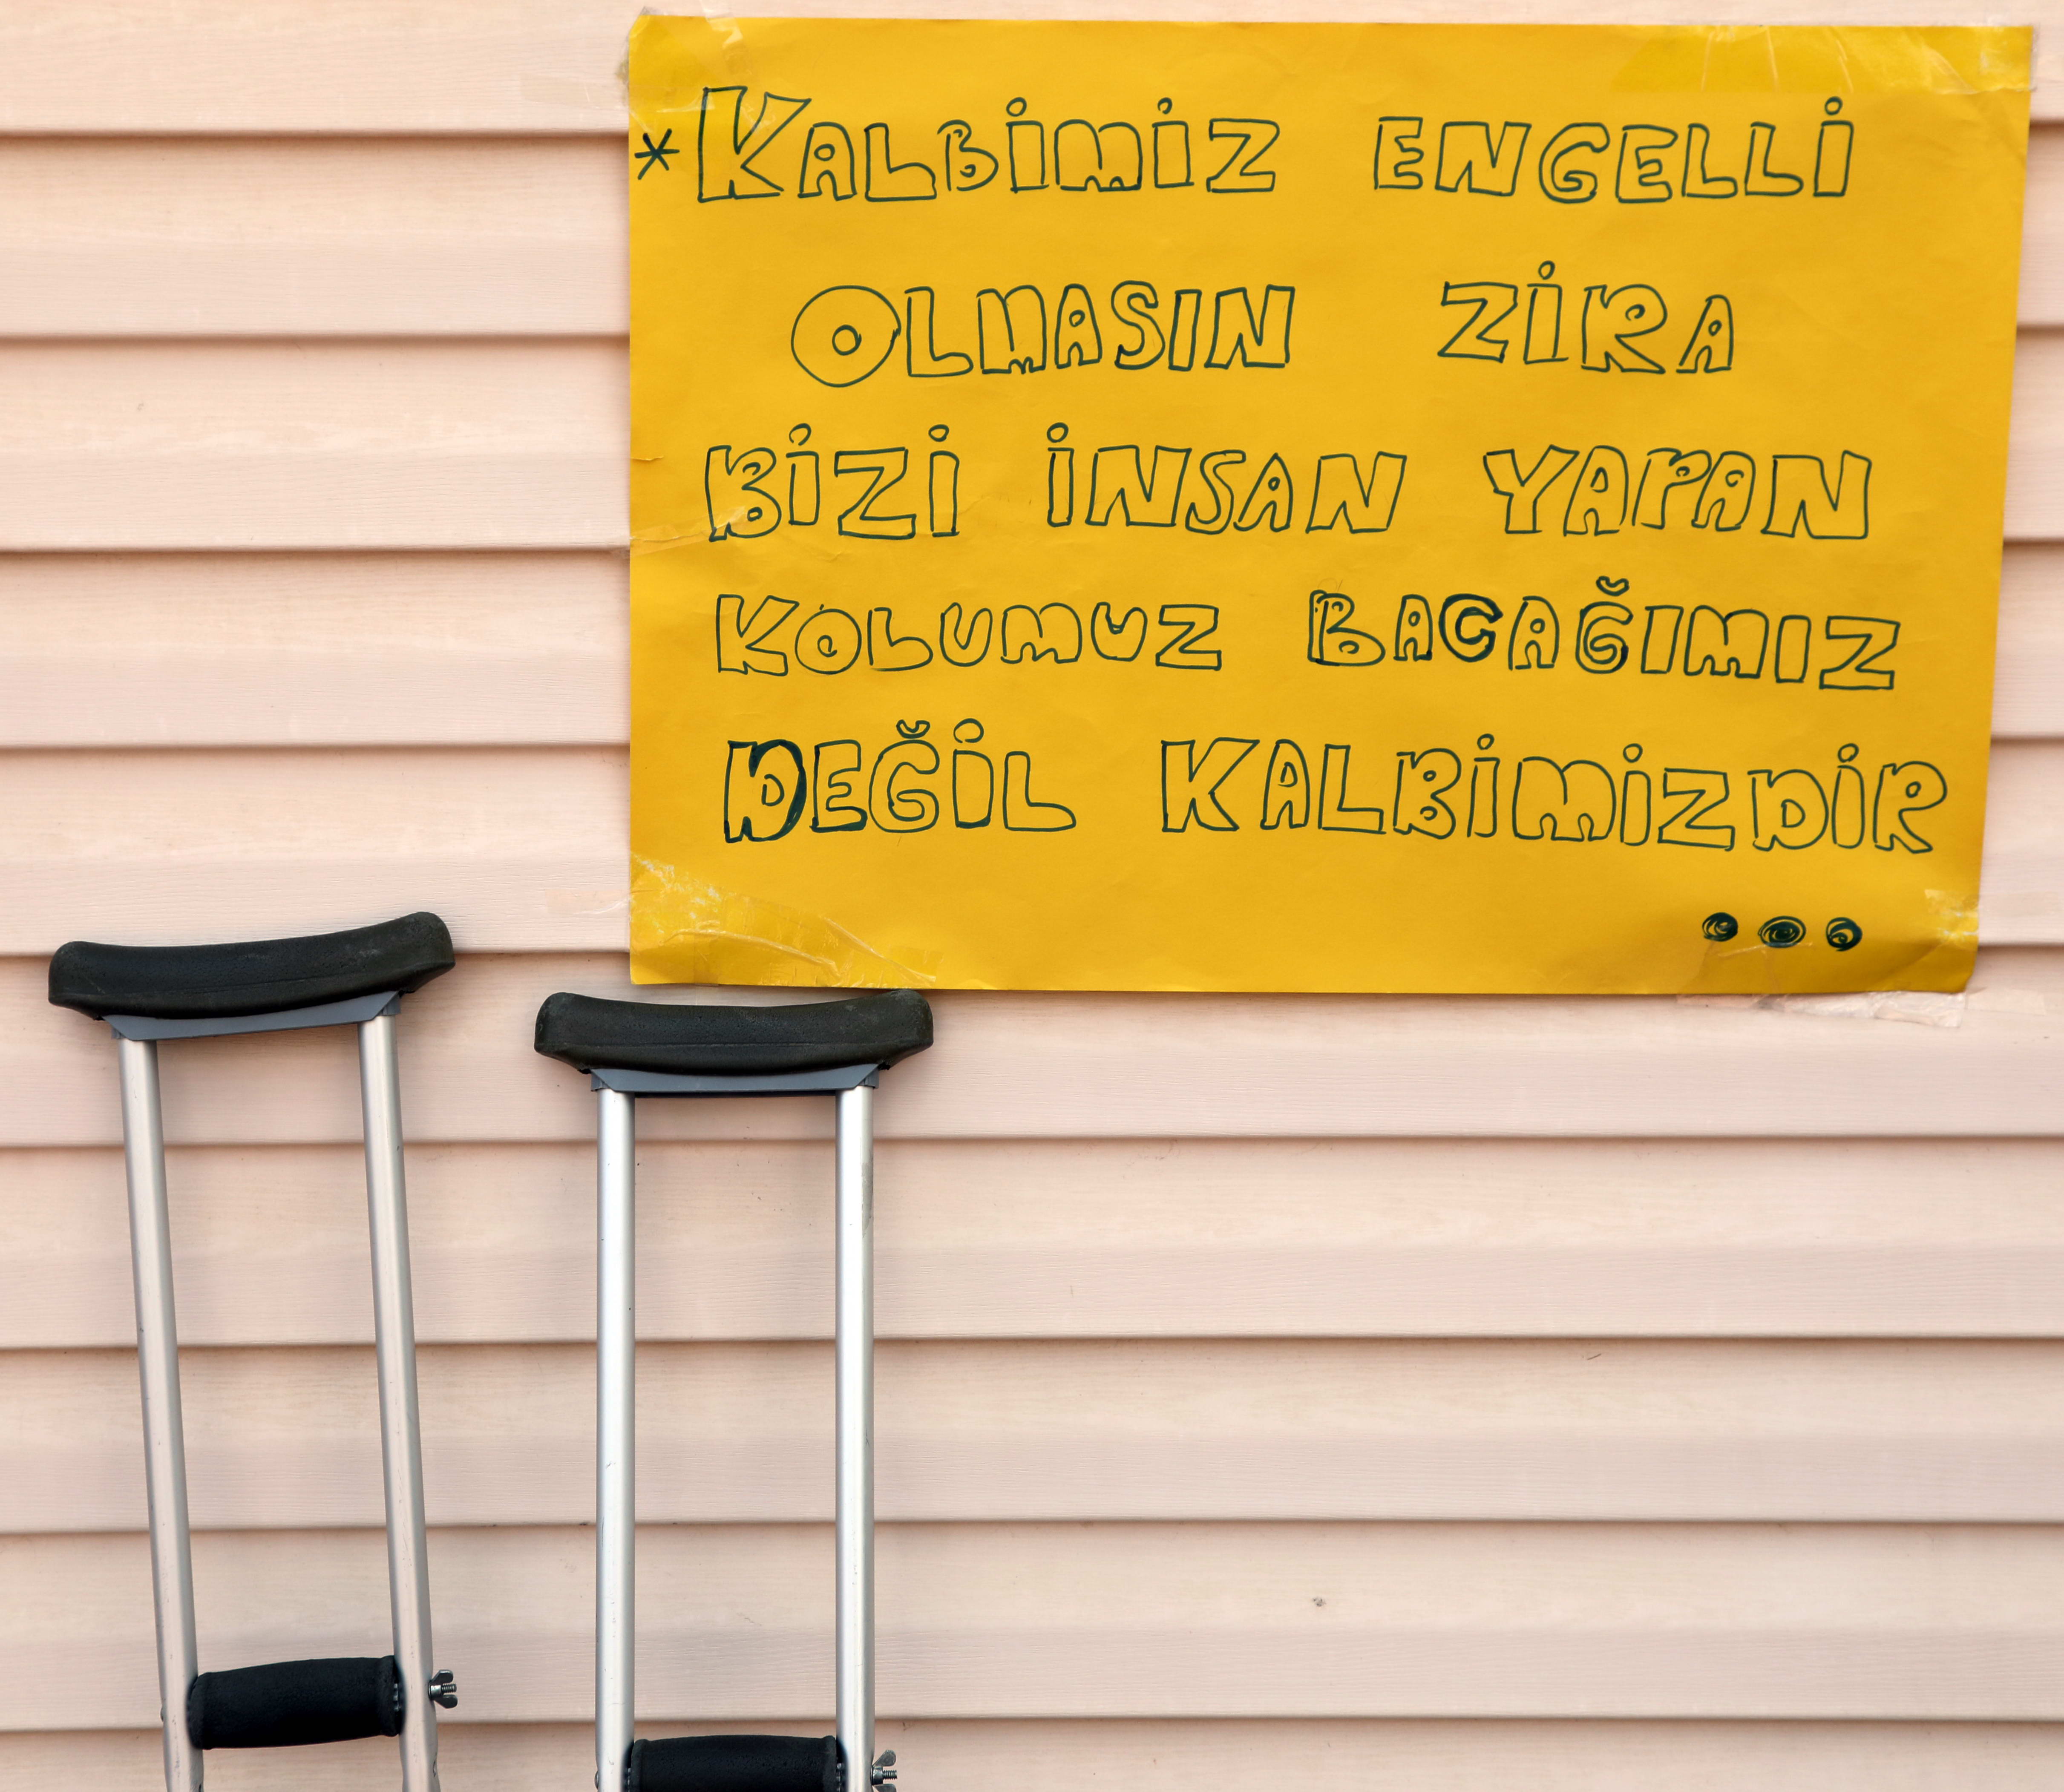 *KALBİMİZ ENGELLİ
OLMASIN ZİRA
BİZİ İNSAN YAPAN
KOLUMUZ BACAĞIMIZ
DEĞİL KALBİMİZDİR
...